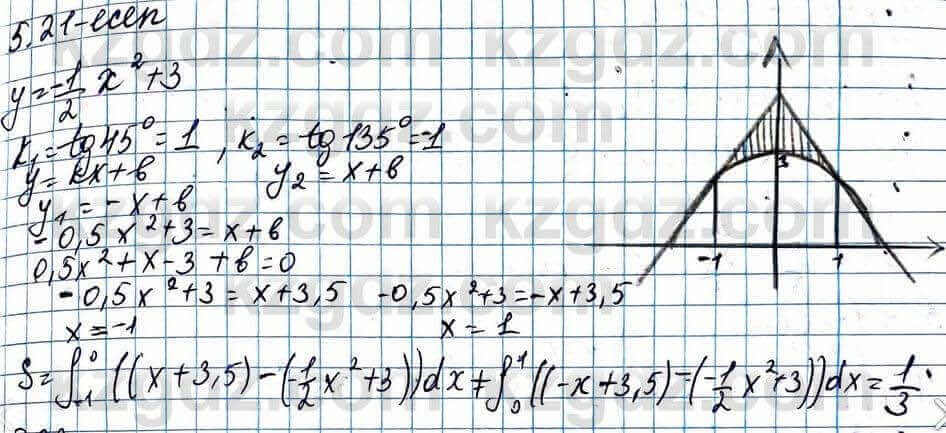 5.21-есеп
y = -1/2 x² + 3
k₁ = tg 45° = 1, k₂ = tg 135° = -1
y = kx + b y₂ = x + b
y₁ = -x + b
-0,5x² + 3 = x + b
0,5x² + x - 3 + b = 0
-0,5x² + 3 = x + 3,5 -0,5x² + 3 = -x + 3,5
x = -1 x = 1
S = ∫₋₁⁰ ((x + 3,5) - (-1/2 x² + 3))dx + ∫₀¹ ((-x + 3,5) - (-1/2 x² + 3))dx = 1/3.
3
-1 1
kzgdz.com